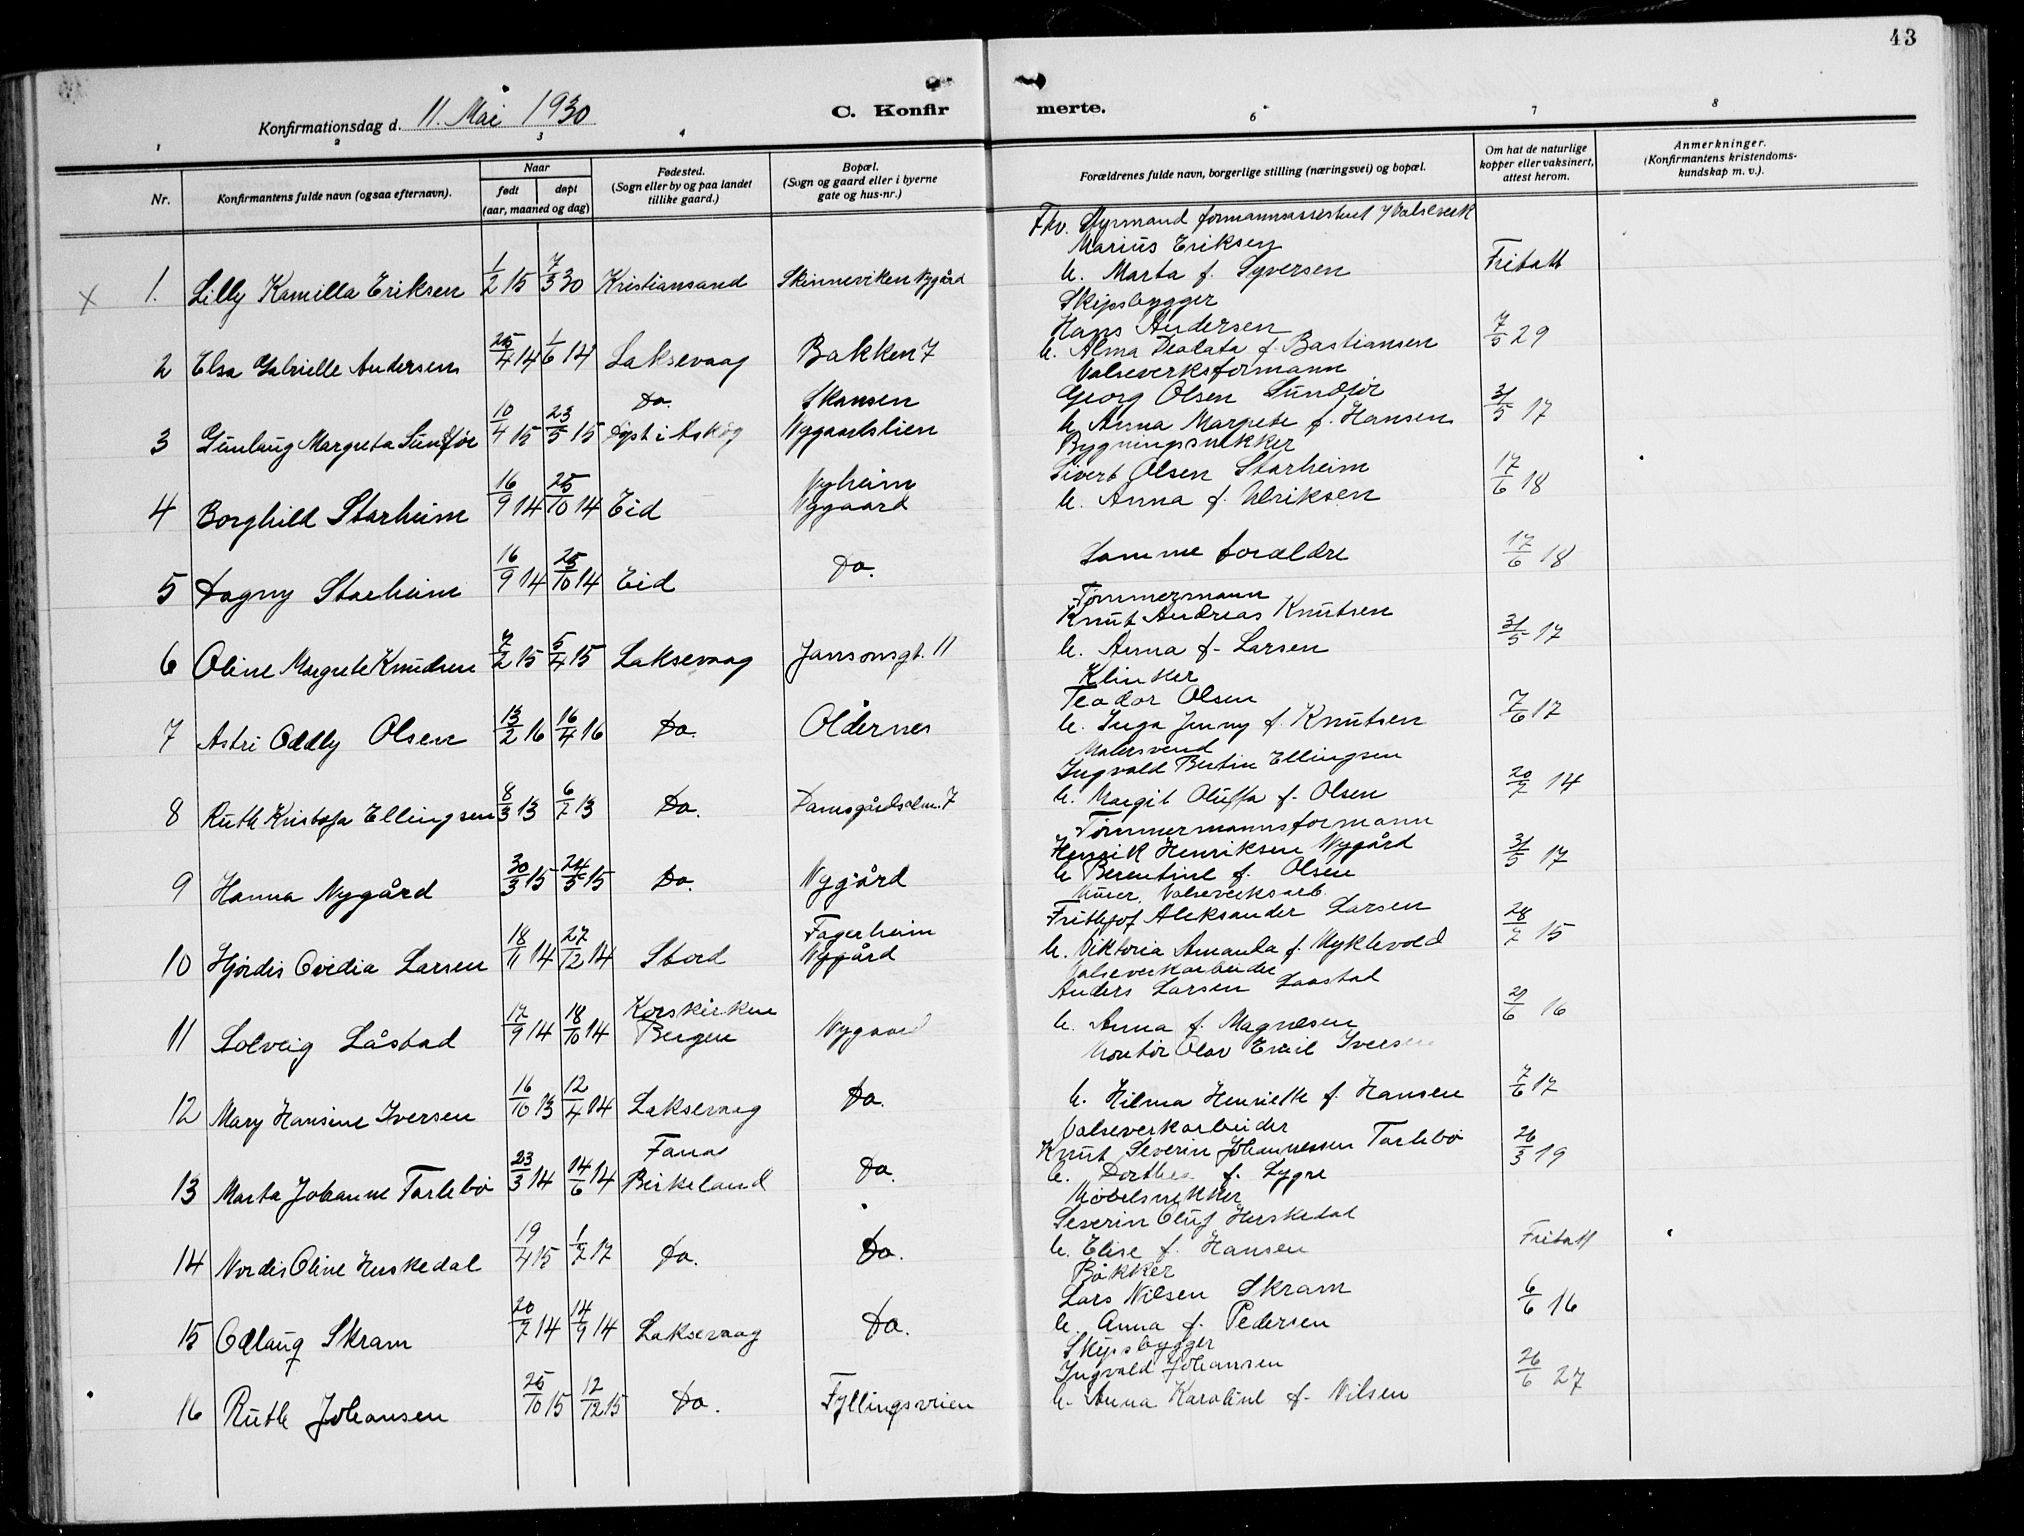 43
Konfirmationsdag d. 11. Mai 1930
C. Konfirmerte.
1 2 3 4 6 7 8
Nr.
Konfirmantens fulde navn (ogsaa efternavn).
Naar
født døpt
(aar, maaned og dag)
Fødested.
(Sogn eller by og paa landet
tillike gaard.)
Bopæl.
(Sogn og gaard eller i byerne
gate og hus-nr.)
Forældrenes fulde navn, borgerlige stilling (næringsvei) og bopæl.
Om hat de naturlige
kopper eller vaksinert,
attest herom.
Anmerkninger.
(Konfirmantens kristendoms-
kundskap m. v.).
Fhv. Styrmand formannsassistent / Valseverk
Marius Eriksen
x 1. Lilly Kamilla Eriksen 1/2 15 7/3 30 Kristiansand Skinneviken Nygård h. Marta f. Syversen Fritatt
Skipsbygger
Hans Andersen
2 Elsa Gabrielle Andersen 25/4 14 1/6 14 Laksevaag Bakken 7 h. Alma f. Bastiansen 7/5 29
Valseverksformann
Do. Skansen Georg Olsen Sundfør
3 Gunlaug Margreta Sundfør 10/4 15 23/5 15 Døpt i Askøy Nygaardslien h. Anna Margrete f. Hansen 31/5 17
Bygningssnekker
Nyheim Sivert Olsen Starheim
4 Borghild Starheim 16/9 14 25/10 14 Eid Nygaard h. Anna f. Ulriksen 17/6 18
5 Dagny Starheim 16/9 14 25/10 14 Eid Do. Samme forældre 17/6 18
Tømmermann
Knut Andreas Knutsen
6 Oline Margrete Knudsen 7/2 15 5/4 15 Laksevaag Jansonsgt. 11 h. Anna f. Larsen 31/5 17
Klinker
Teodor Olsen
7 Astri Oddly Olsen 13/2 16 16/4 16 Do. Oldernes h. Inga Jenny f. Knutsen 7/6 17
Malersvend
Ingvald Bertin Ellingsen
8 Ruth Kristofa Ellingsen 8/3 13 6/7 13 Do. Damsgårdsalm. 7 h. Margit Oluffa f. Olsen 20/2 14
Tømmermannsformann
Henrik Henriksen Nygård
9 Hanna Nygård 30/3 15 24/5 15 Do. Nygård h. Berentine f. Olsen 31/5 17
Murer, Valseverksarb.
Fagerheim Frithjof Aleksander Larsen
10 Hjørdis Ovidia Larsen 18/11 14 27/12 14 Stord Nygård h. Viktoria Amanda f. Myklevold 28/7 15
Valseverkarbeider
Korskirken Anders Larsen Laastad
11 Solveig Låstad 17/9 14 18/10 14 Bergen Nygaard h. Anna f. Magnesen 21/6 16
Montør Olav Emil Iversen
12 Mary Hansine Iversen 16/10 13 12/4 14 Laksevaag Do. h. Hilma Henriette f. Hansen 7/6 17
Valseverkarbeider
Fana Knut Severin Johannessen Tarlebø
13 Marta Johanne Tarlebø 23/3 14 14/6 14 Birkeland Do. h. Dorthea f. Lygre 26/3 19
Møbelsnekker
Severin Oluf Herskedal
14 Nordis Oline Herskedal 19/4 15 1/7 17 Do. Do. h. Elise f. Hansen Fritatt
Bøkker
Lars Nilsen Skram
15 Odlaug Skram 20/7 14 14/9 14 Laksevaag Do. h. Anna f. Pedersen 6/6 16
Skipsbygger
Ingvald Johansen
16 Ruth Johansen 25/10 15 12/12 15 Do. Fyllingsveien h. Anna Karoline f. Nilsen 26/6 27